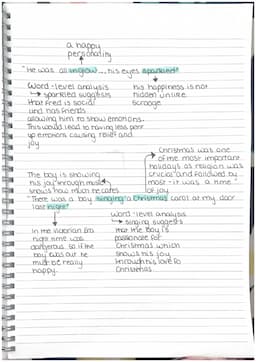 a happy
personality
"He was all in glow... his eyes sparkled"
Word-level analysis
→ sparkled suggests
that Fred is social
and has friends
allowing him to show emotions.
This would lead to having less
up emotions causing relief and
joy
his happiness is not
hidden unlike
Scrooge
Christmas was one
of the most important
holidays as religion was
crucial and followed by
most - it was a time
of joy
The boy is showing
his joy through music
shows how much he cares
"There was a boy singing a Christmas carol at my door
last night"
Word-level analysis
→ singing suggests
that the boy is
passionate for
Christmas which
shows his joy
through his love for
Christmas
In the Victorian Era
night time was
dangerous. So if the
boy was out he
must be really
happy.